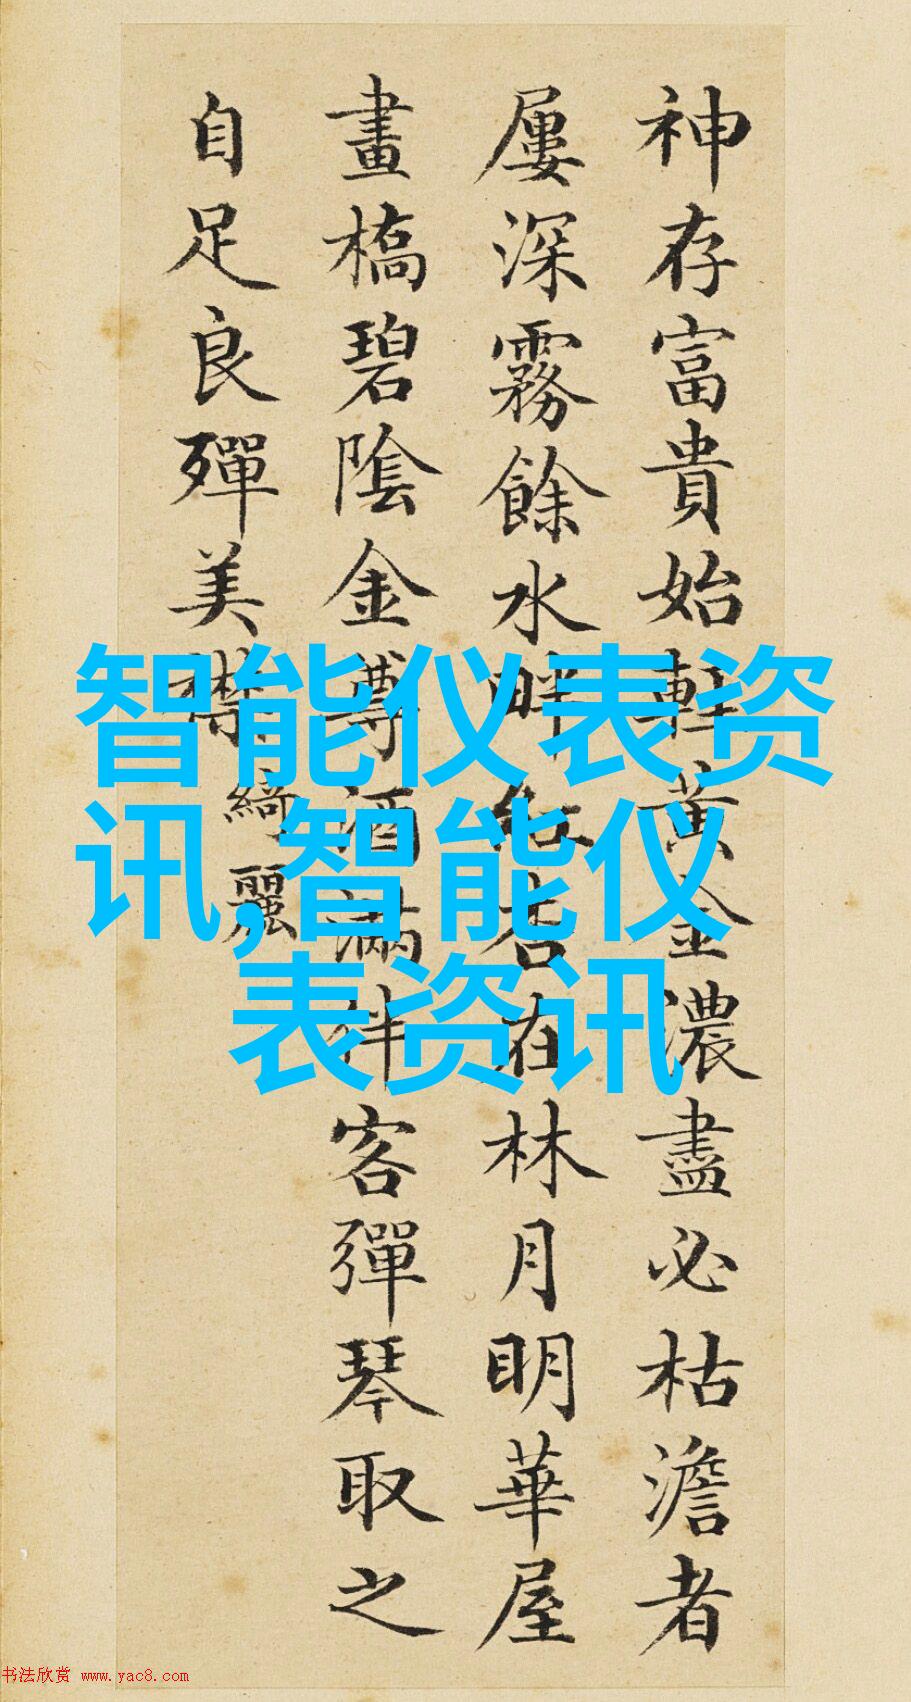 神存富貴始輕黃金濃盡必枯澹者
屢深霧餘水畔紅杏在林月明華屋
畫橋碧陰金尊酒滿伴客彈琴取之
自足良殫美襟綺麗
智能仪表资
讯,智能仪
表资讯
书法欣赏 www.yac8.com